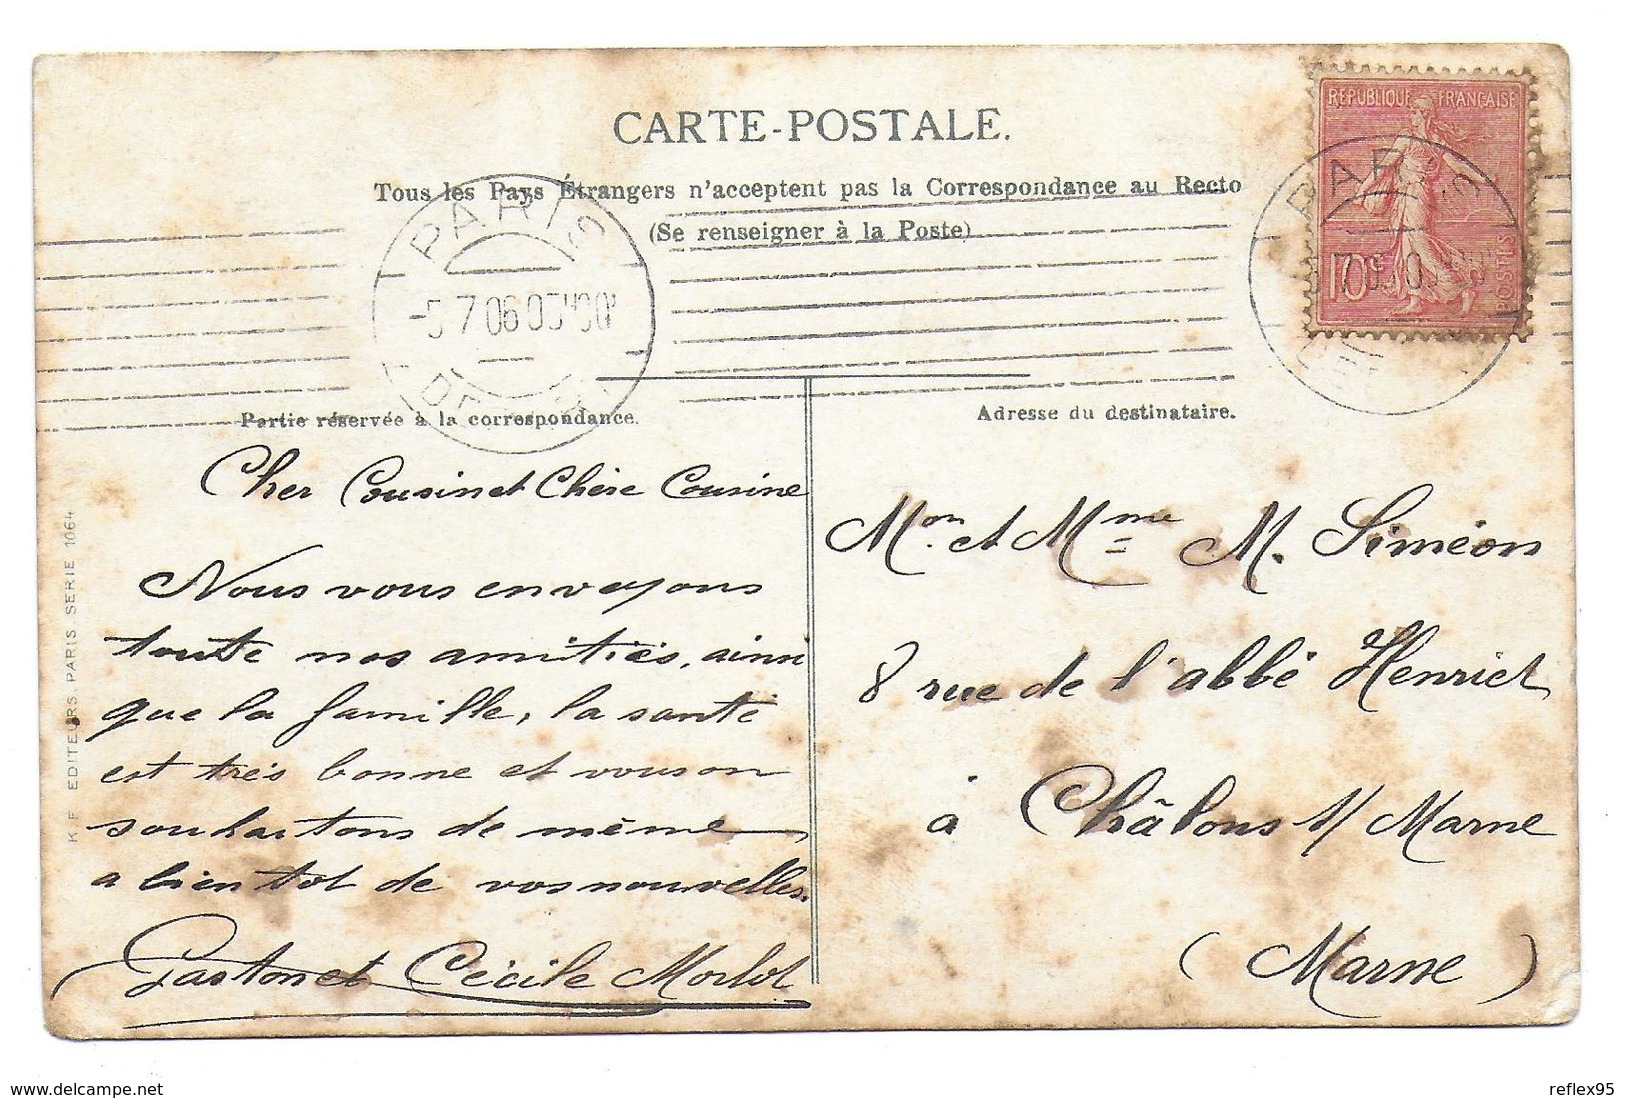 CARTE-POSTALE.
Tous les Pays Étrangers n'acceptent pas la Correspondance au Recto
(Se renseigner à la Poste)
RÉPUBLIQUE FRANÇAISE
10c
POSTES
PARIS
7 06
PARIS
Partie réservée à la correspondance.
Adresse du destinataire.
Cher Cousin et Chère Cousine
Nous vous envoyons
toute nos amitiés, ainsi
que la famille, la santé
est très bonne et vous on
souhaitons de même,
a bientot de vos nouvelles.
Gaston et Cécile Morlot
Mon. et Mme M. Siméon
8 rue de l'abbé Henriet
à Châlons s/ Marne
(Marne)
K.F. EDITEURS. PARIS. SERIE 1064
www.delcampe.net
reflex95